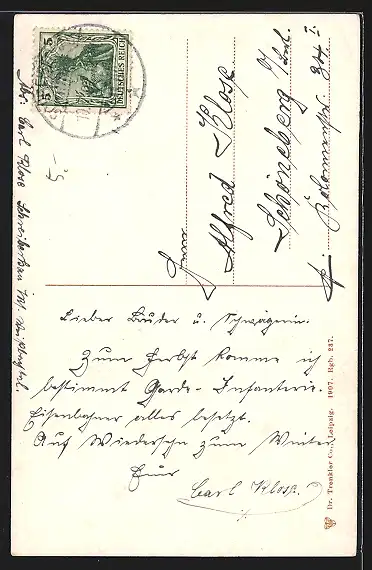 5 5
DEUTSCHES REICH
Herrn
Alfred Klose
Schöneberg b/Brl.
Kolonnenstr.
Abs: Carl Klose Schreiberhau
5.-
Lieber Bruder u. Schwägerin.
Zum Herbst komme ich
bestimmt Garde-Infanterie.
Eisenbahner alles besetzt.
Auf Wiedersehn zum Winter
Euer
Carl Klose.
Dr. Trenkler Co., Leipzig. 1907. Rgb. 247.